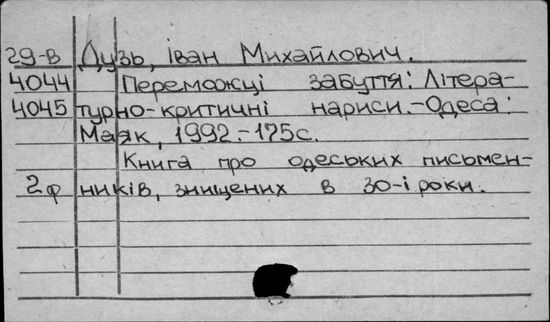 29-В Дузь, Іван Михайлович.
4044 Переможці забуття: Літера-
4045 турно-критичні нариси.-Одеса:
Маяк, 1992.-175с.
Книга про одеських письмен-
2ф ників, знищених в 30-і роки.